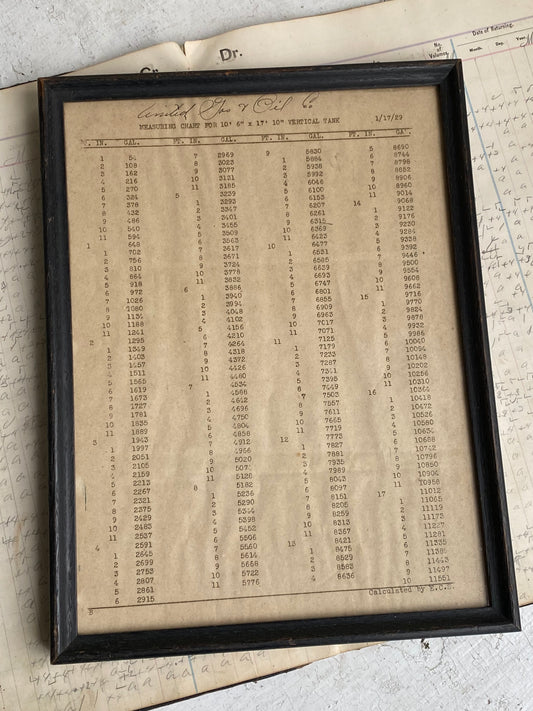 United Gas & Oil Co
MEASURING CHART FOR 10' 6" x 17' 10" VERTICAL TANK 1/17/29
FT. IN. GAL. FT. IN. GAL. FT. IN. GAL. FT. IN. GAL.
1 54
2 108
3 162
4 216
5 270
6 324
7 378
8 432
9 486
10 540
11 594
1 648
1 702
2 756
3 810
4 864
5 918
6 972
7 1026
8 1080
9 1134
10 1188
11 1241
2 1295
1 1349
2 1403
3 1457
4 1511
5 1565
6 1619
7 1673
8 1727
9 1781
10 1835
11 1889
3 1943
1 1997
2 2051
3 2105
4 2159
5 2213
6 2267
7 2321
8 2375
9 2429
10 2483
11 2537
4 2591
1 2645
2 2699
3 2753
4 2807
5 2861
6 2915
7 2969
8 3023
9 3077
10 3131
11 3185
5 3239
1 3293
2 3347
3 3401
4 3455
5 3509
6 3563
7 3617
8 3671
9 3724
10 3778
11 3832
6 3886
1 3940
2 3994
3 4048
4 4102
5 4156
6 4210
7 4264
8 4318
9 4372
10 4426
11 4480
7 4534
1 4588
2 4642
3 4696
4 4750
5 4804
6 4858
7 4912
8 4966
9 5020
10 5074
11 5128
8 5182
1 5236
2 5290
3 5344
4 5398
5 5452
6 5506
7 5560
8 5614
9 5668
10 5722
11 5776
9 5830
1 5884
2 5938
3 5992
4 6046
5 6100
6 6153
7 6207
8 6261
9 6315
10 6369
11 6423
10 6477
1 6531
2 6585
3 6639
4 6693
5 6747
6 6801
7 6855
8 6909
9 6963
10 7017
11 7071
11 7125
1 7179
2 7233
3 7287
4 7341
5 7395
6 7449
7 7503
8 7557
9 7611
10 7665
11 7719
12 7773
1 7827
2 7881
3 7935
4 7989
5 8043
6 8097
7 8151
8 8205
9 8259
10 8313
11 8367
13 8421
1 8475
2 8529
3 8583
4 8636
5 8690
6 8744
7 8798
8 8852
9 8906
10 8960
11 9014
14 9068
1 9122
2 9176
3 9230
4 9284
5 9338
6 9392
7 9446
8 9500
9 9554
10 9608
11 9662
15 9716
1 9770
2 9824
3 9878
4 9932
5 9986
6 10040
7 10094
8 10148
9 10202
10 10256
11 10310
16 10364
1 10418
2 10472
3 10526
4 10580
5 10634
6 10688
7 10742
8 10796
9 10850
10 10904
11 10958
17 11012
1 11065
2 11119
3 11173
4 11227
5 11281
6 11335
7 11389
8 11443
9 11497
10 11551
B
Calculated by E.C.S.
Dr.
Date of Returning.
No. of Volumes.
Month. Day. Year.